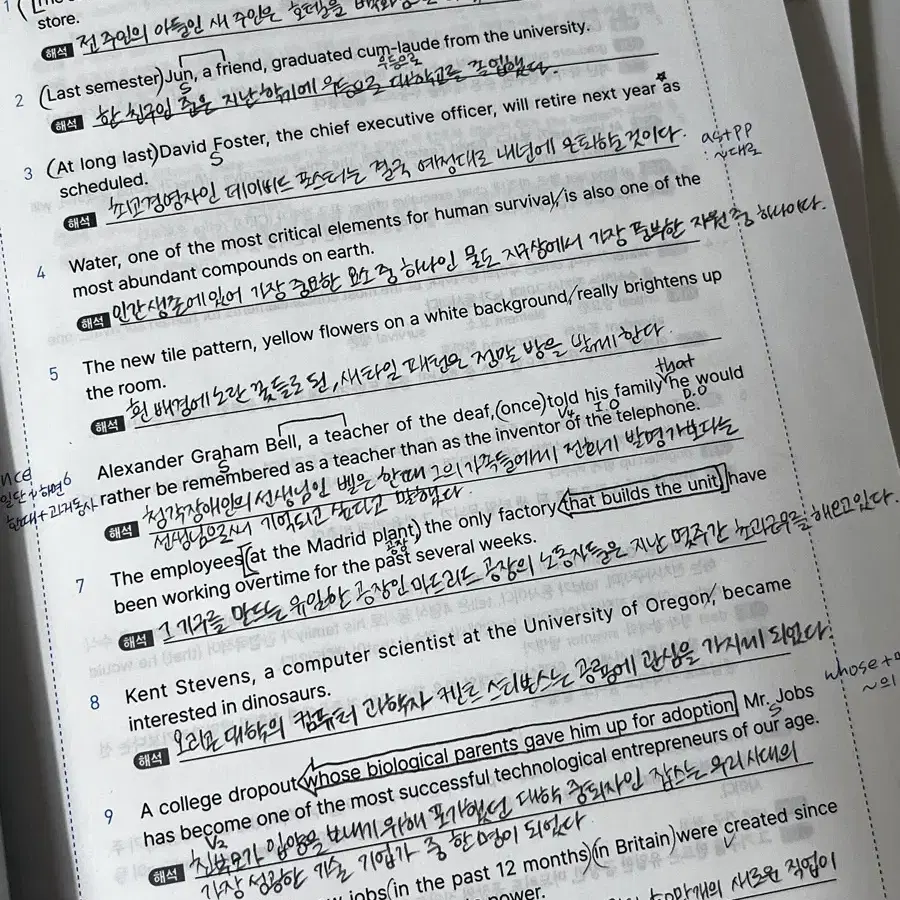 1
store.
해석 전 주인의 아들인 새 주인은 호텔을
2 (Last semester) Jun, a friend, graduated cum-laude from the university.
S 우등으로
해석 한 친구인 준은 지난 학기에 우등으로 대학교를 졸업했다.
3 (At long last) David Foster, the chief executive officer, will retire next year as
S as+pp
scheduled. : ~대로
해석 최고경영자인 데이비드 포스터는 결국 예정대로 내년에 은퇴할 것이다.
4 Water, one of the most critical elements for human survival, is also one of the
most abundant compounds on earth.
해석 인간 생존에 있어 가장 중요한 요소 중 하나인 물도 지구상에서 가장 풍부한 자원 중 하나이다.
5 The new tile pattern, yellow flowers on a white background, really brightens up
the room.
해석 흰 배경에 노란 꽃들로 된, 새 타일 패턴은 정말 방을 밝게 한다.
that
6 Alexander Graham Bell, a teacher of the deaf, (once) told his family he would
S V4 I.O D.O
rather be remembered as a teacher than as the inventor of the telephone.
일단 ~하면
한때+과거동사
해석 청각장애인의 선생님인 벨은 한때 그의 가족들에게 전화기 발명가보다는
선생님으로서 기억되고 싶다고 말했다.
7 The employees [(at the Madrid plant,) the only factory that builds the unit,] have
공장
been working overtime for the past several weeks.
해석 그 기구를 만드는 유일한 공장인 마드리드 공장의 노동자들은 지난 몇 주간 초과근무를 해오고 있다.
8 Kent Stevens, a computer scientist at the University of Oregon, became
interested in dinosaurs.
해석 오리곤 대학의 컴퓨터 과학자 켄트 스티븐스는 공룡에 관심을 가지게 되었다.
whose+
~의
9 A college dropout whose biological parents gave him up for adoption, Mr. Jobs
S
has become one of the most successful technological entrepreneurs of our age.
V2
해석 친부모가 입양을 보내기 위해 포기했던 대학 중퇴자인 잡스는 우리 시대의
가장 성공한 기술 기업가 중 한 명이 되었다.
jobs (in the past 12 months) (in Britain) were created since
power.
새로운 직업이